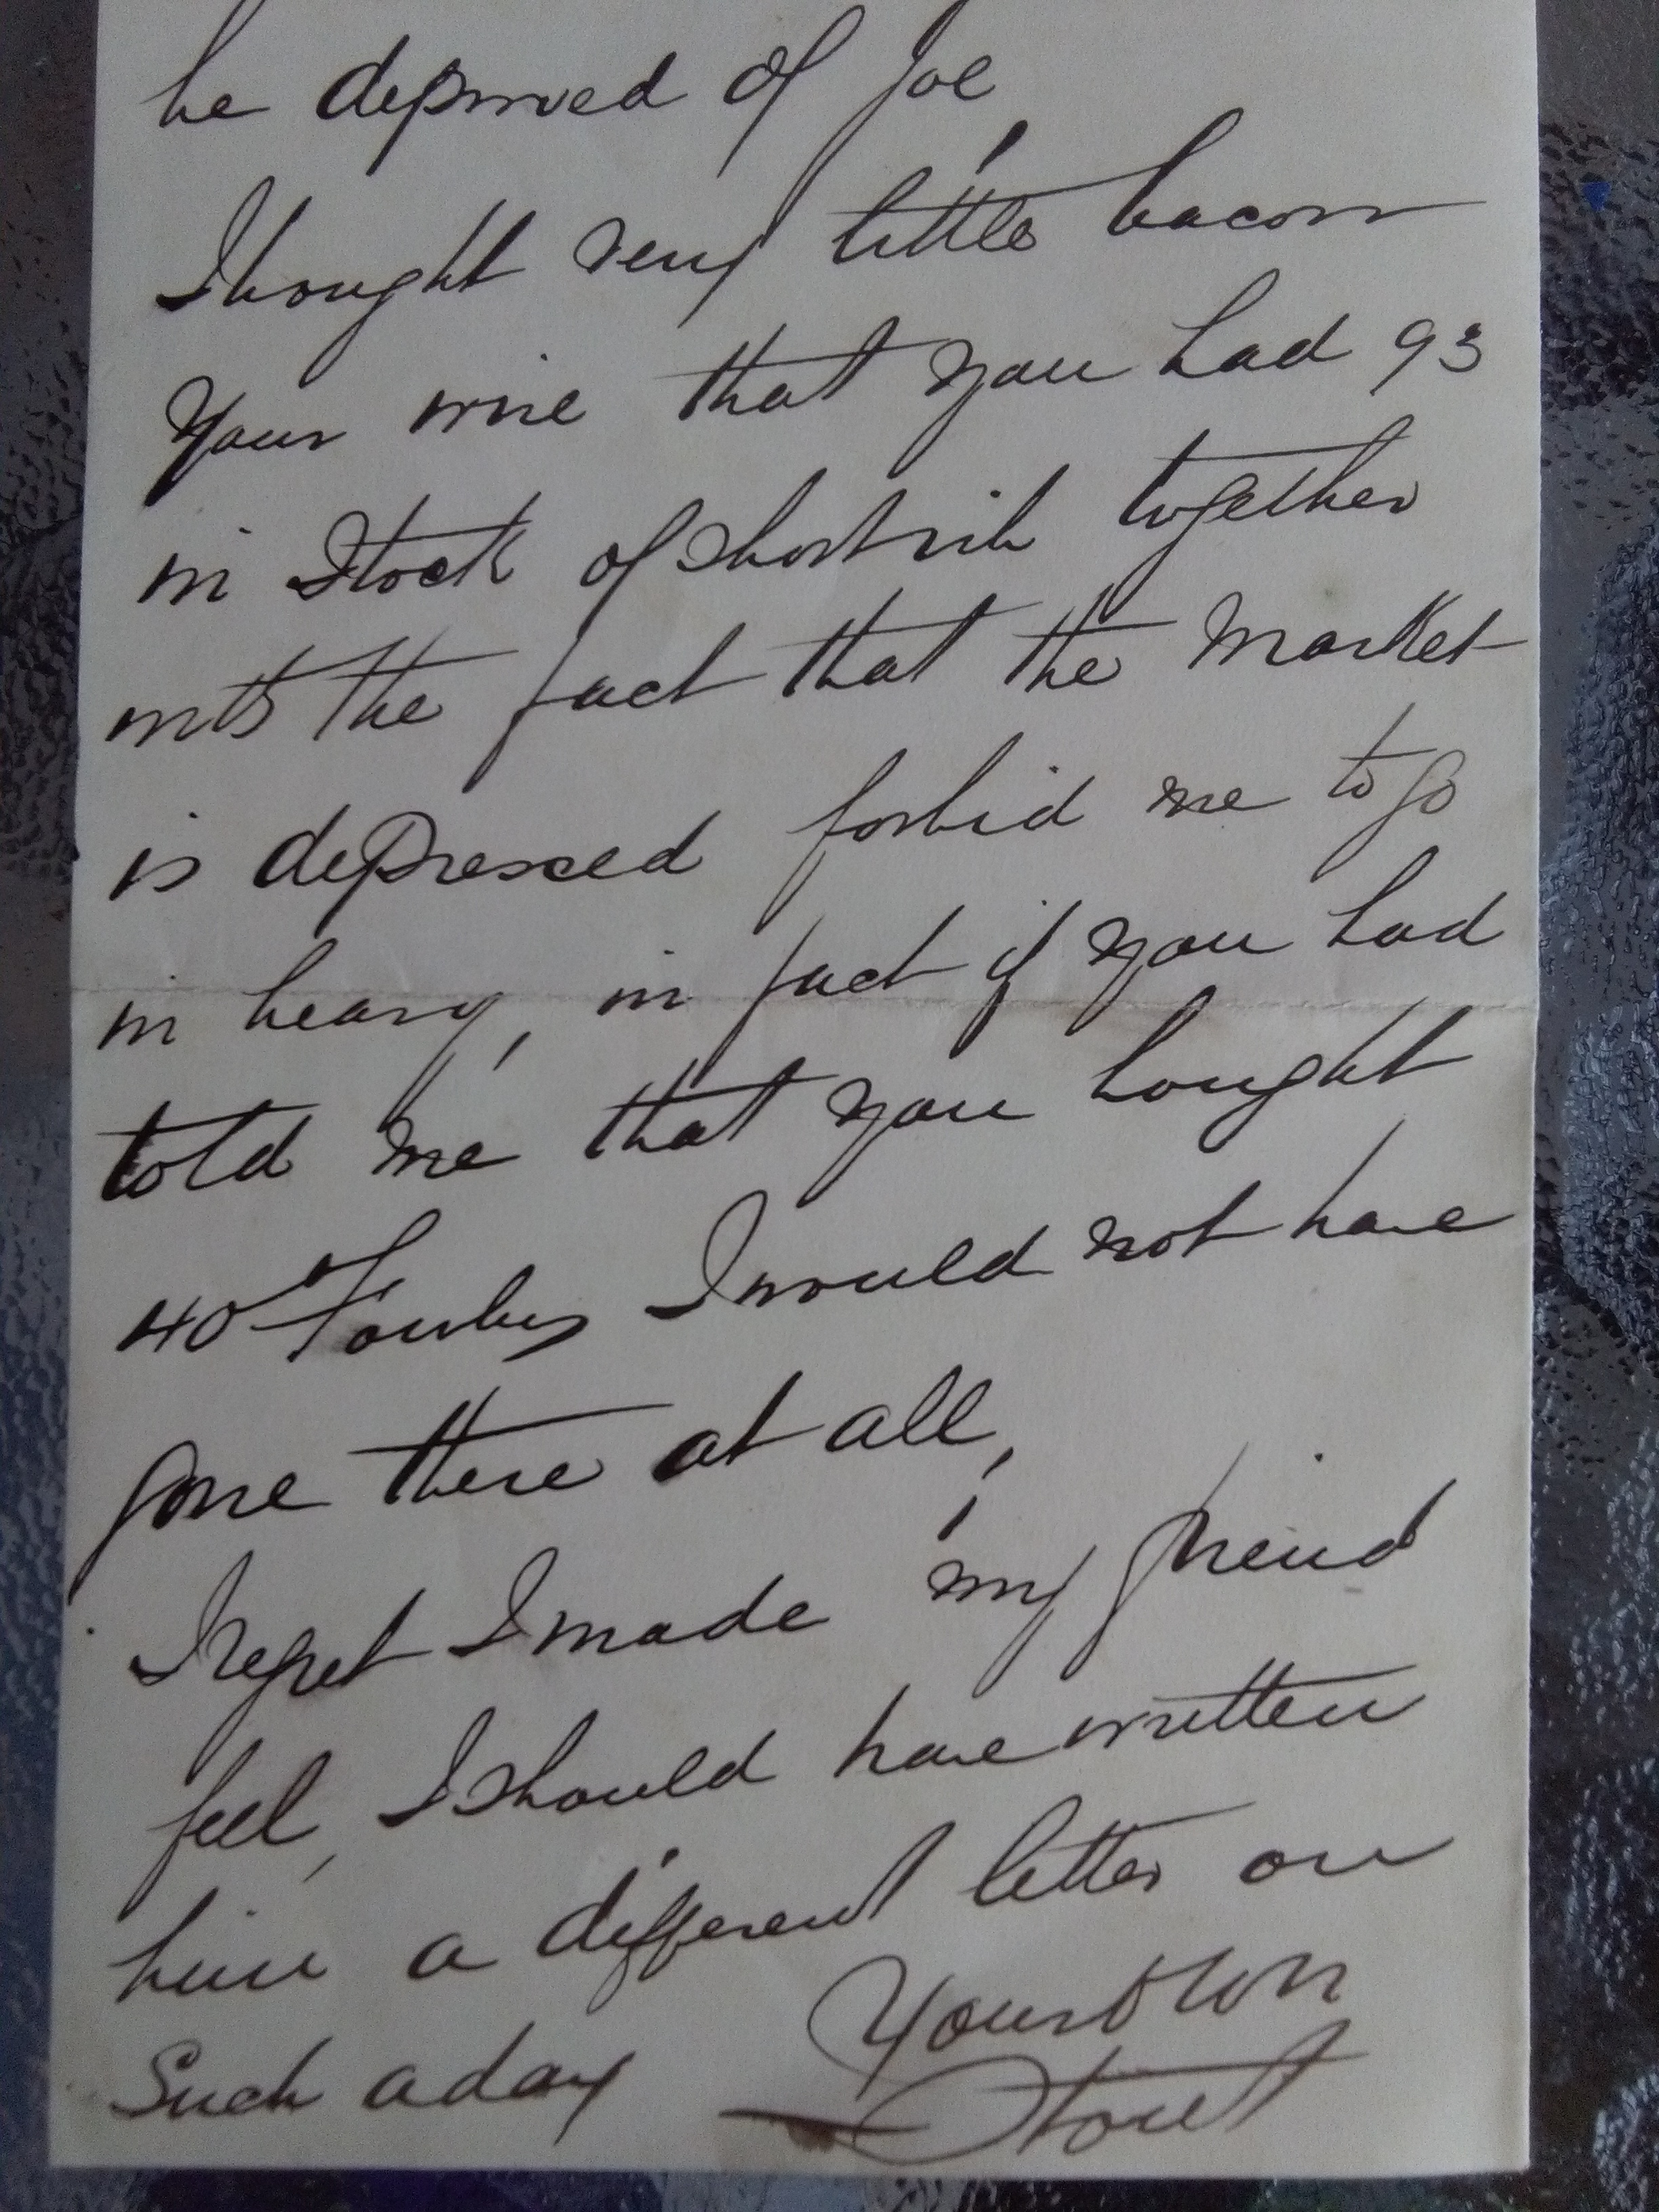 be deprived of Joe,
I bought very little bacon
Your wire that you had 93
in Stock of Short rib together
with the fact that the Market
is depressed forbid me to go
in heavy, in fact if you had
told me that you bought
40 I would not have
gone there at all,
I regret I made my friend
feel, I should have written
him a different letter on
Such a day
Yours
Stout